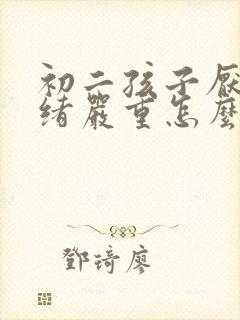 初二孩子厭
緒嚴重怎麼
鄧琦廖